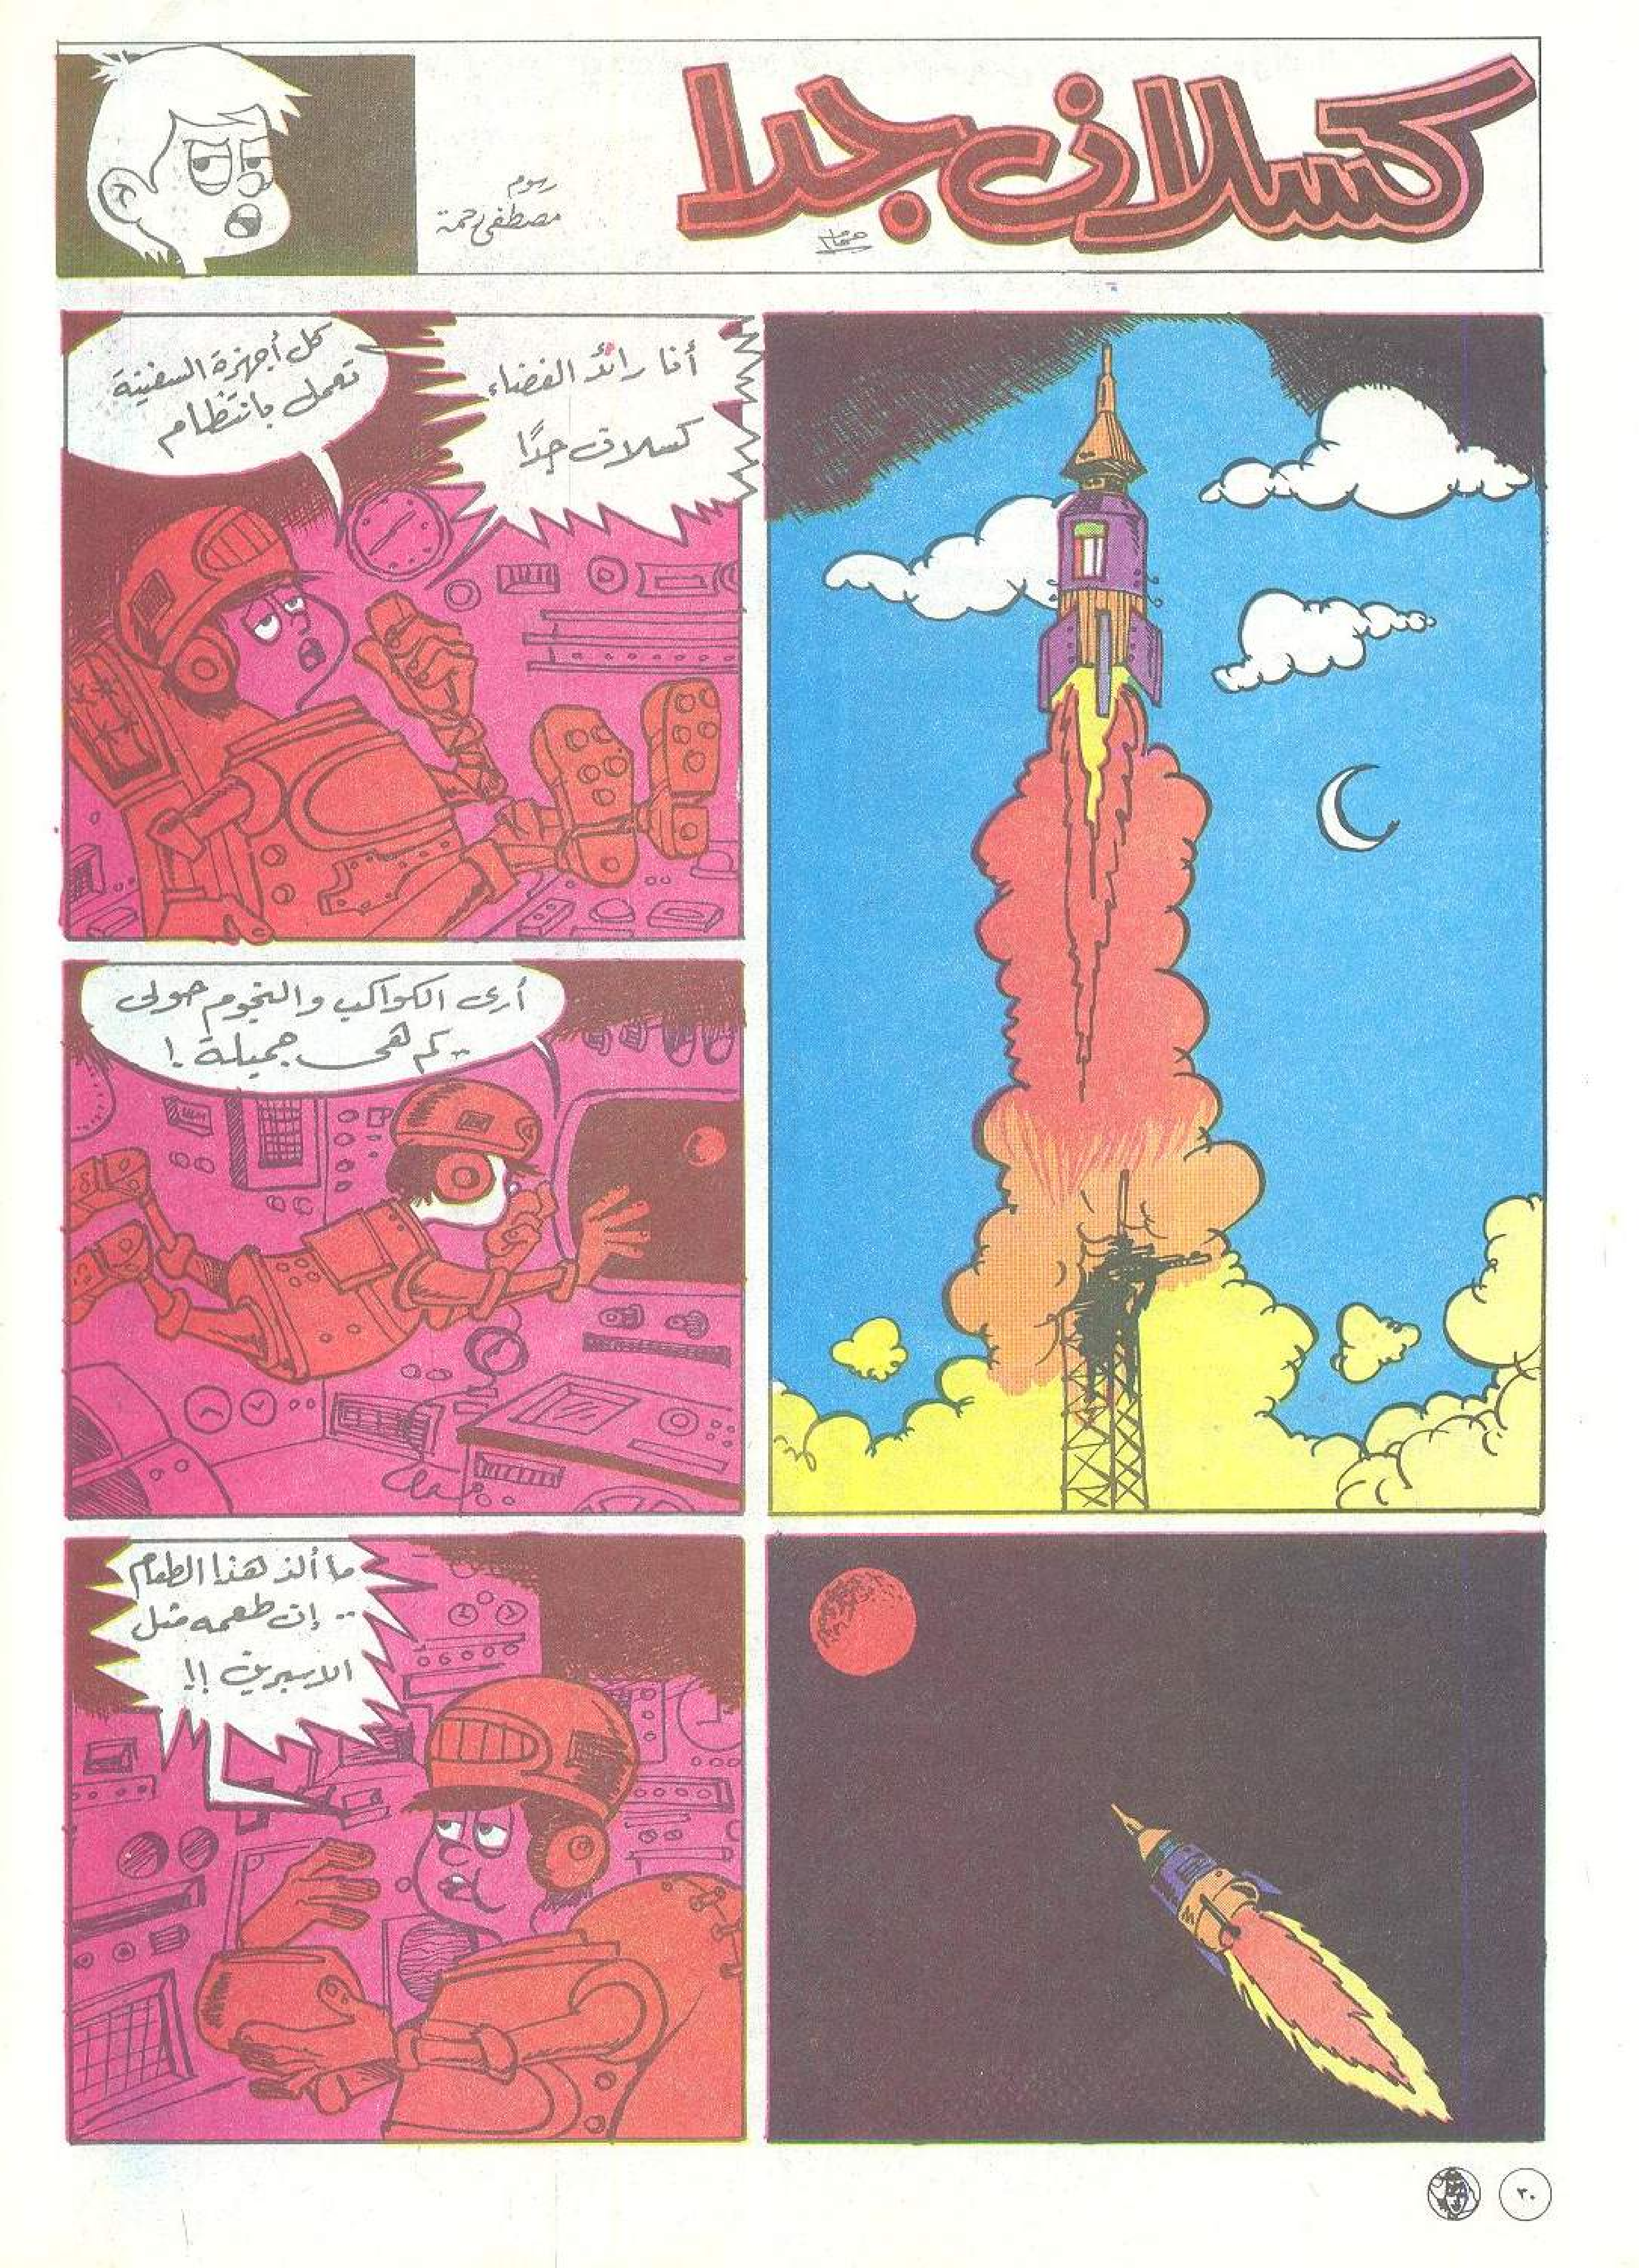 كسلان جدا
رسوم
مصطفى رحمة
أنا رائد الفضاء
كسلان جدًا
كل أجهزة السفينة
تعمل بانتظام
أرى الكواكب والنجوم حولى
.. كم هى جميلة !
ما ألذ هذا الطعام
.. إن طعمه مثل
الاسبرين !!
٣٠